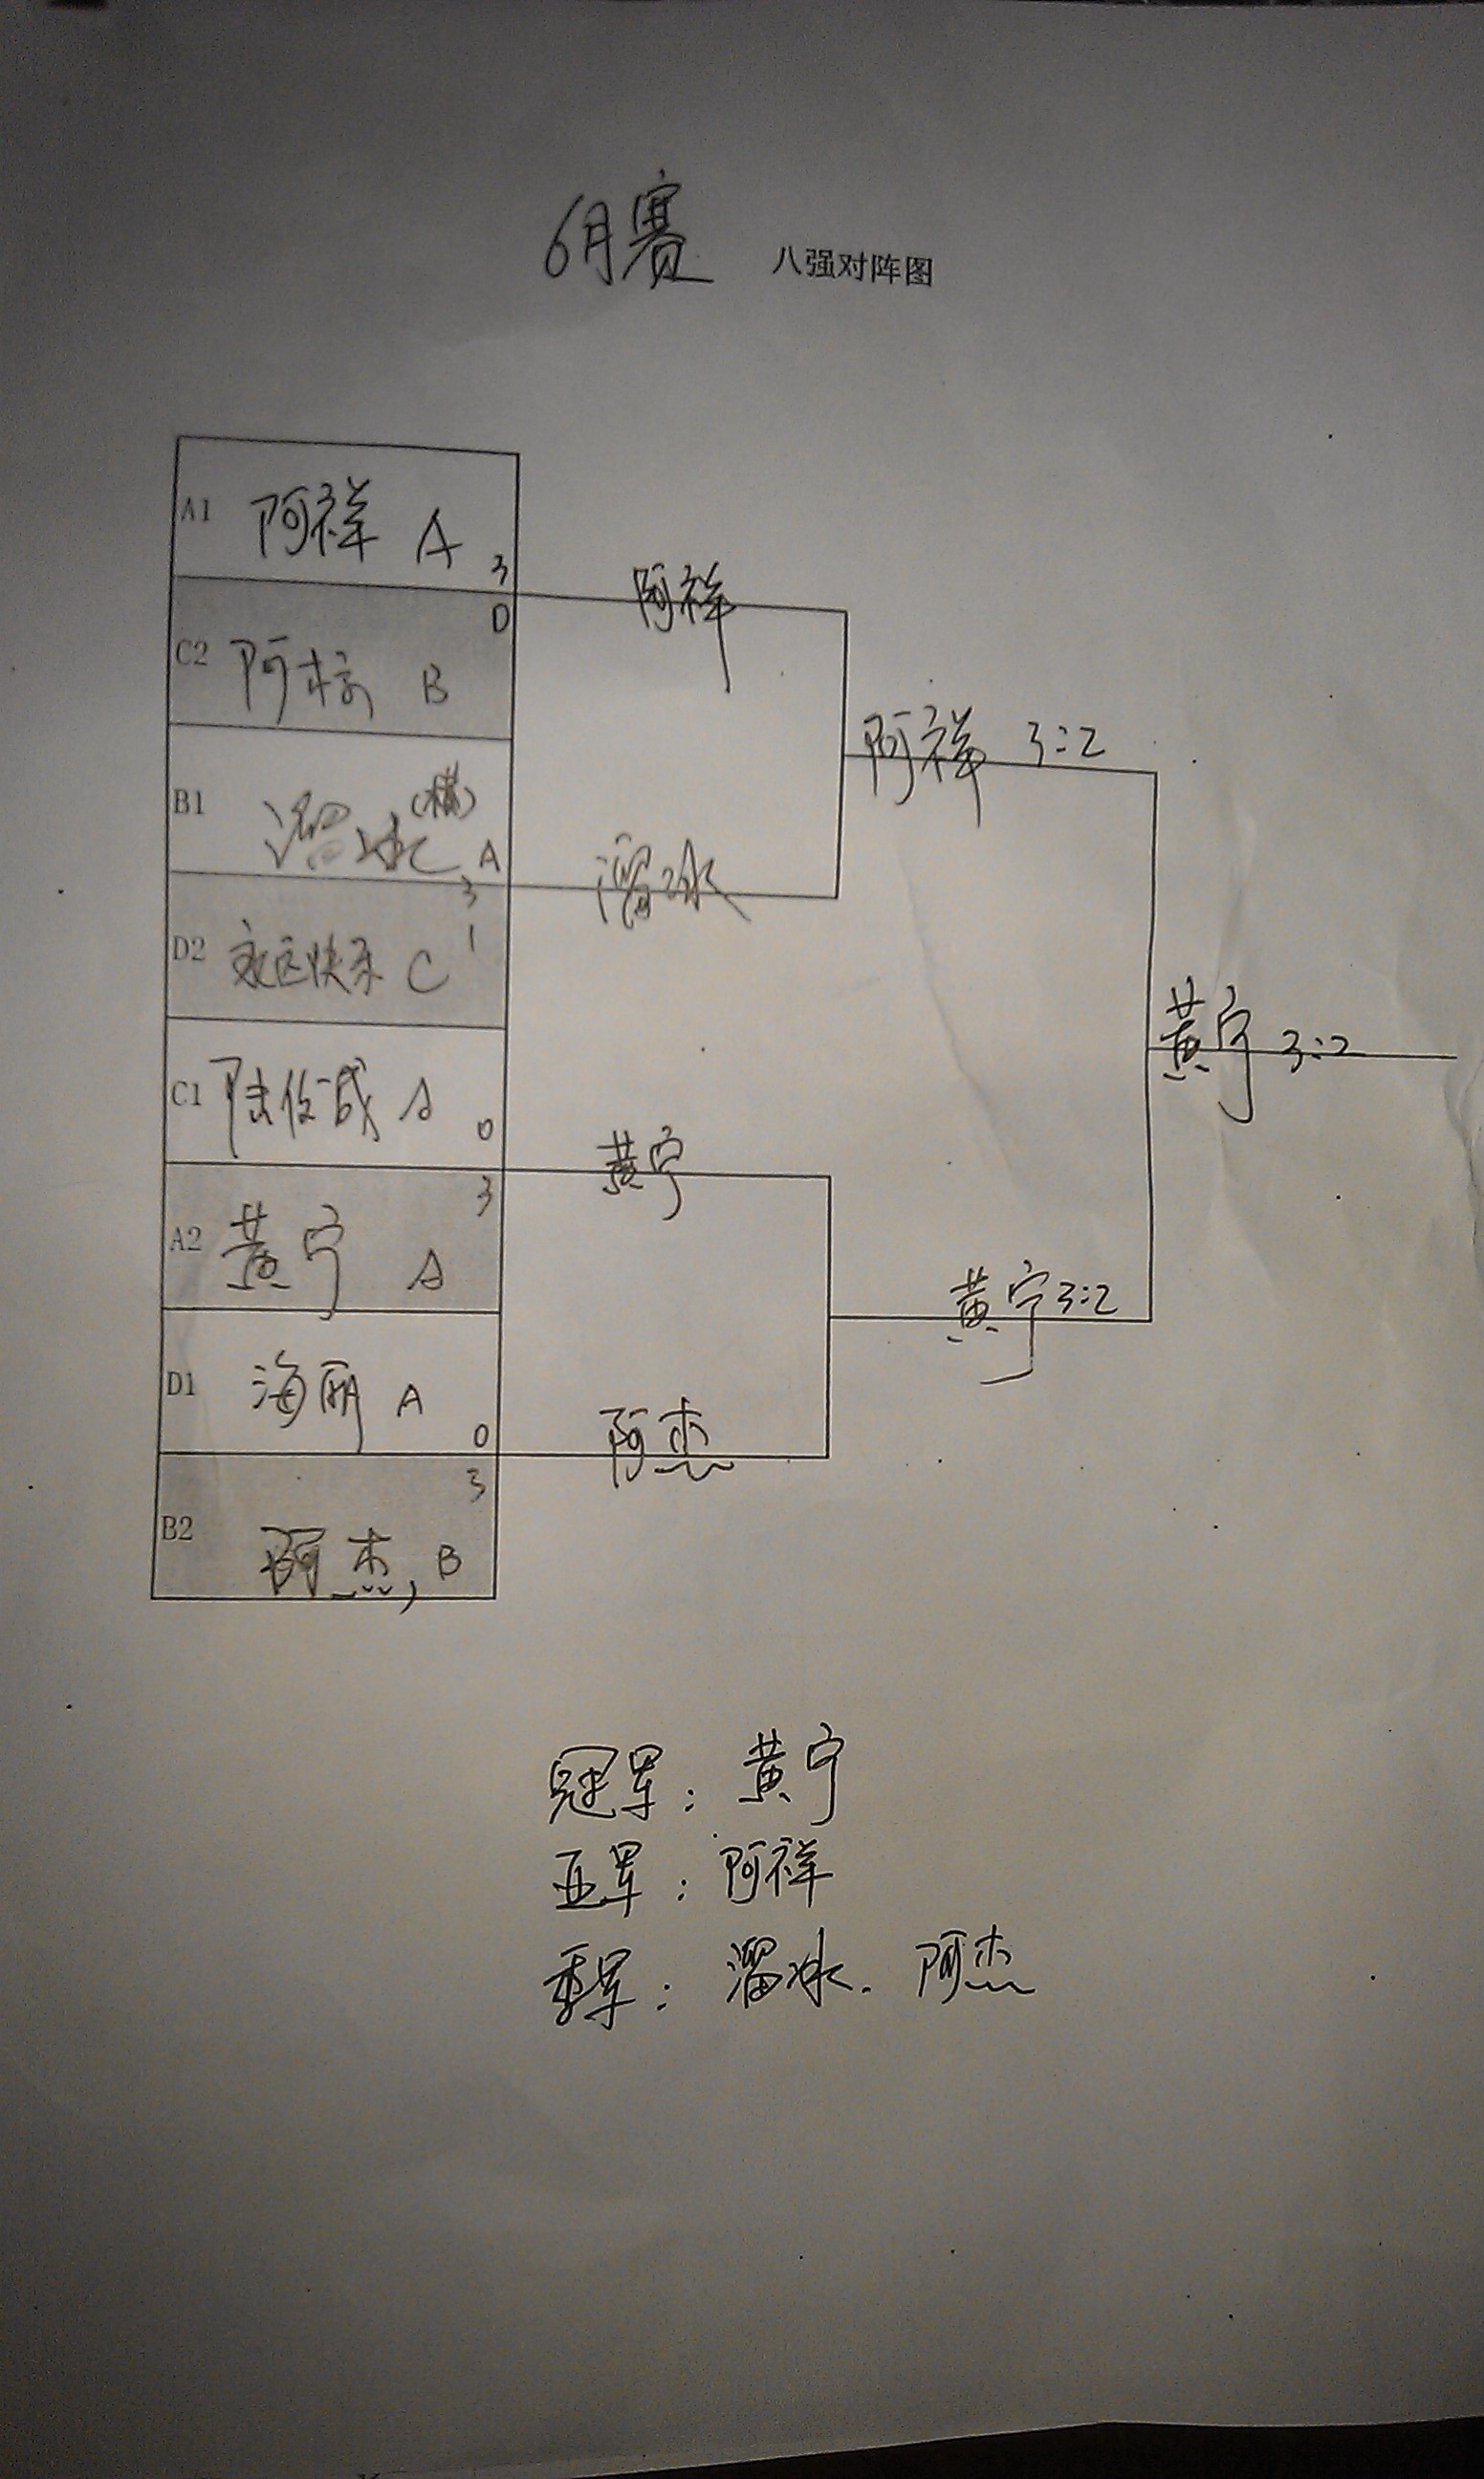 6月赛 八强对阵图
A1 阿祥 A 3
0
阿祥
C2 阿 B
阿祥 3:2
B1 溜冰(横) A
3
溜冰
D2 永远快乐 C 1
黄宁 3:2
C1 陆俊成 A 0
黄宁
3
A2 黄宁 A
黄宁 3:2
D1 海丽 A 0
阿杰
3
B2 阿杰, B
冠军: 黄宁
亚军: 阿祥
季军: 溜冰. 阿杰